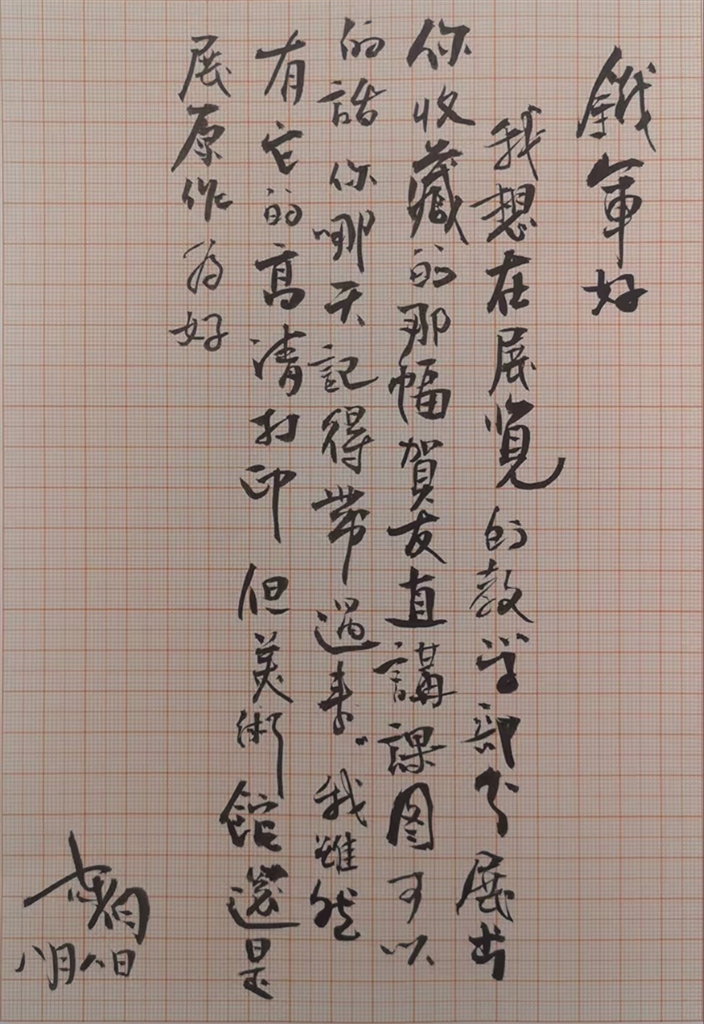 鐵軍好
我想在展览的教学部分展出
你收藏的那幅賀友直講課图可以
的話你哪天記得带過来。我雖然
有它的高清打印但美術館還是
展原作为好
八月八日